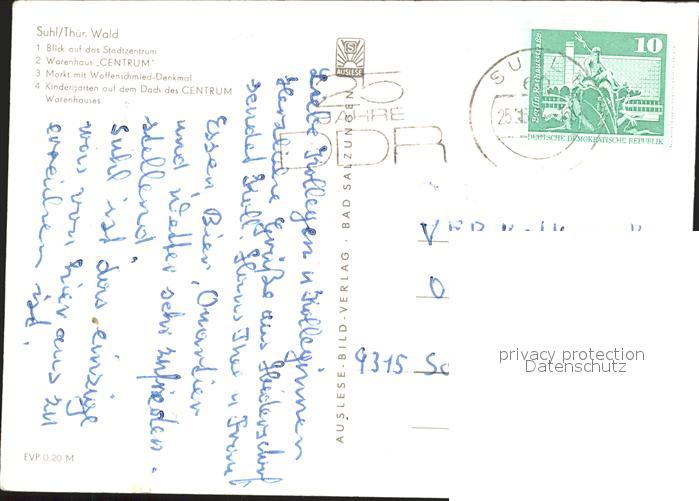 Suhl/Thür. Wald
1 Blick auf das Stadtzentrum
2 Warenhaus „CENTRUM"
3 Markt mit Waffenschmied-Denkmal
4 Kindergarten auf dem Dach des CENTRUM
Warenhauses
AUSLESE
25
JAHRE
DDR
SUHL
25.
10
Berlin, Rathausstraße
DEUTSCHE DEMOKRATISCHE REPUBLIK
Liebe Kollegen u. Kolleginnen
Herzliche Grüße aus
sendet Koll. Hans u. Frau
Essen, Bier, Quartier
und Wetter sehr zufrieden-
stellend,
Suhl ist das einzige
was von hier aus zu
erreichen ist.
AUSLESE-BILD-VERLAG · BAD SALZUNGEN
VEB
O
9315
EVP 0,20 M
privacy protection
Datenschutz